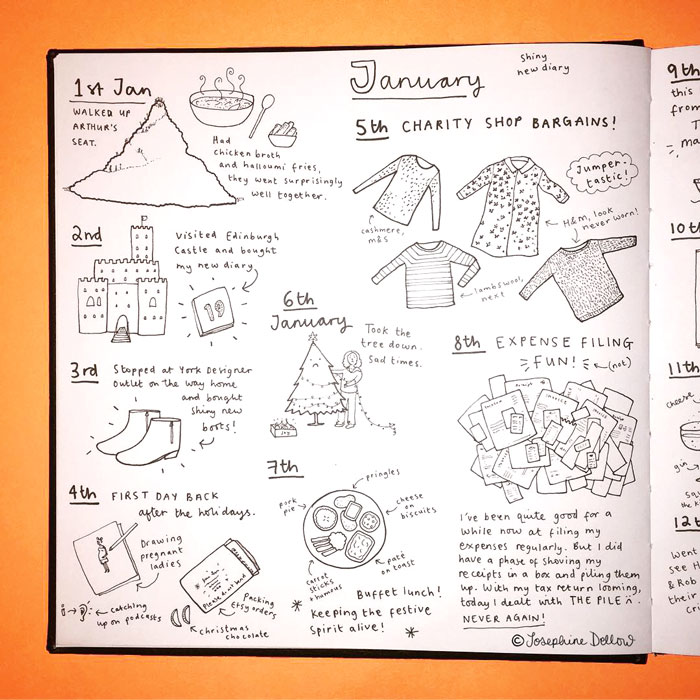 January
Shiny
new diary
1st Jan
WALKED UP
ARTHUR'S
SEAT.
Had
chicken broth
and halloumi fries,
they went surprisingly
well together.
2nd
Visited Edinburgh
Castle and bought
my new diary
19
3rd
Stopped at York Designer
Outlet on the way home
and bought
shiny new
boots!
4th FIRST DAY BACK
after the holidays.
Drawing
pregnant
ladies
Catching
up on podcasts
Packing
Etsy orders
Christmas
chocolate
5th CHARITY SHOP BARGAINS!
Jumper-
tastic!
cashmere,
m&s
H&M, look
never worn!
lambswool,
next
6th
January
Took the
tree down.
Sad times.
JOY
7th
pringles
pork
pie
cheese
on
biscuits
paté
on toast
carrot
sticks
+ humous
Buffet lunch!
Keeping the festive
spirit alive!
8th EXPENSE FILING
FUN! (not)
I've been quite good for a
while now at filing my
expenses regularly. But I did
have a phase of shoving my
receipts in a box and piling them
up. With my tax return looming,
today I dealt with THE PILE.
NEVER AGAIN!
© Josephine Dellow
9th
this
from
ma
10th
11th
cheese
gin
12t
Went
see H
& Rob
their